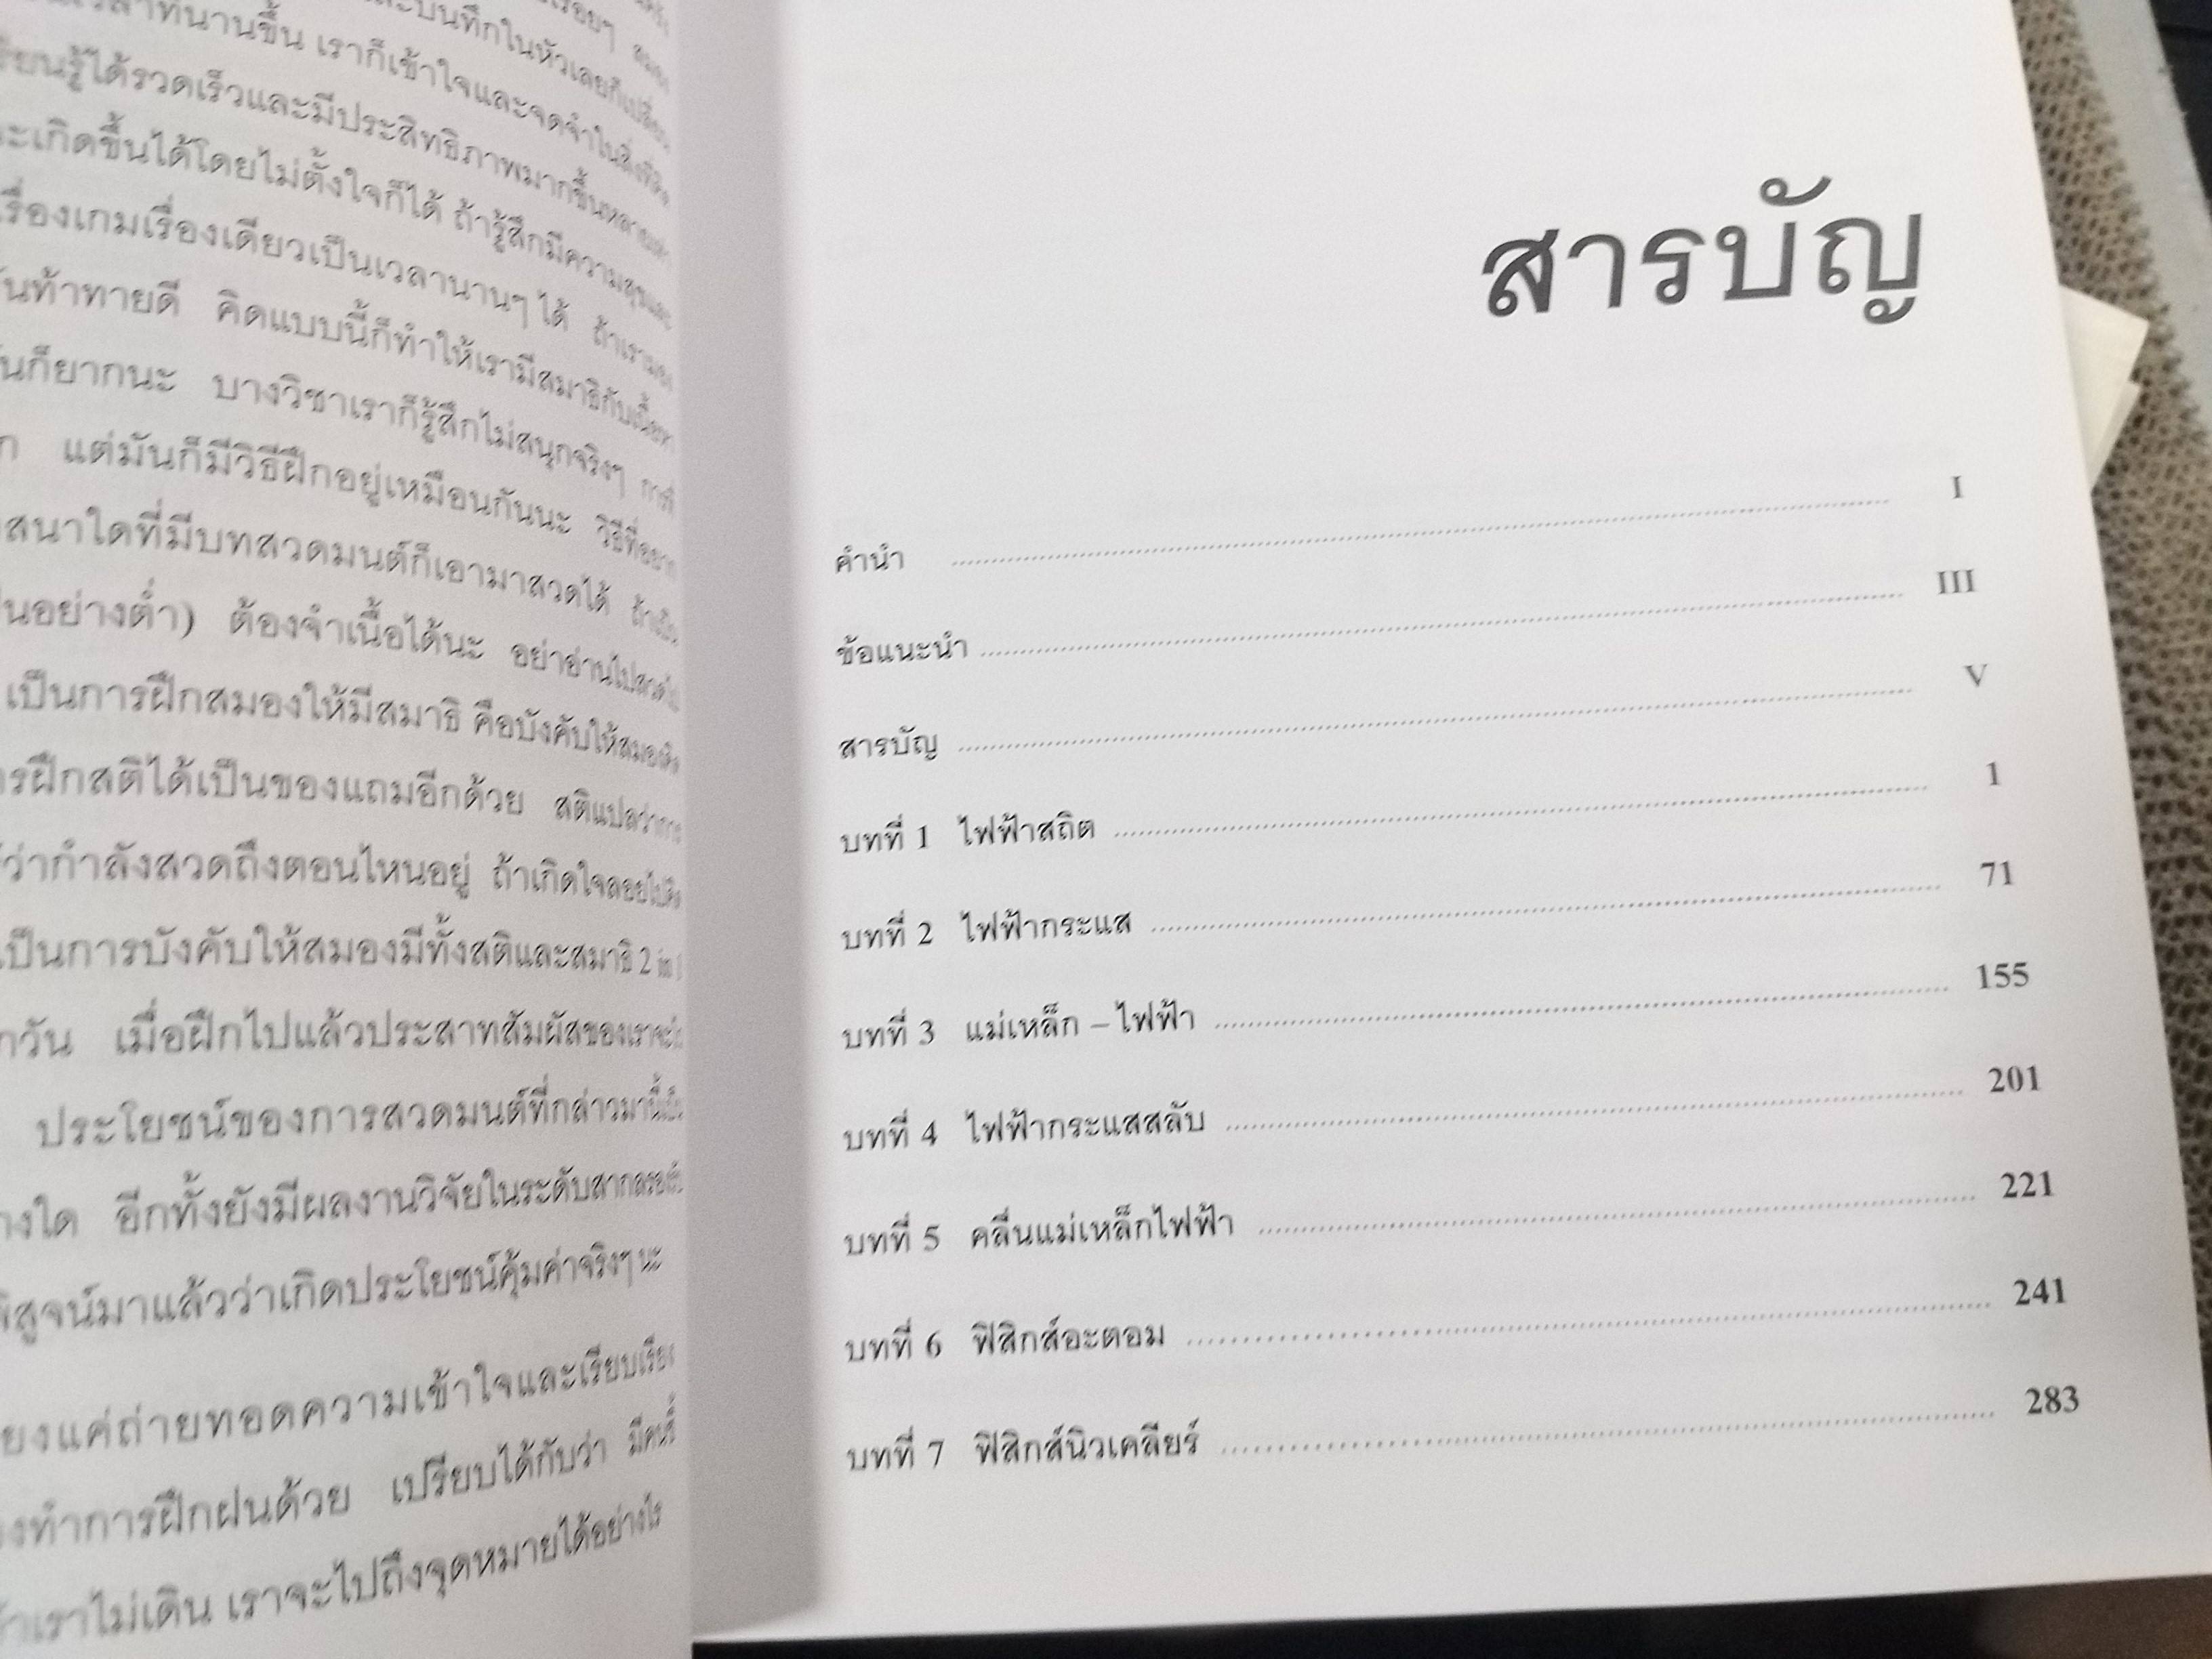 บันทึกในหัวเลยก็เปลี่ยน
เวลาที่นานขึ้น เราก็เข้าใจและจดจำในสิ่งที่
เรียนรู้ได้รวดเร็วและมีประสิทธิภาพมากขึ้นหลายเท่า
จะเกิดขึ้นได้โดยไม่ตั้งใจก็ได้ ถ้ารู้สึกมีความสุขและ
เรื่องเกมเรื่องเดียวเป็นเวลานานๆ ได้ ถ้าเรามอง
ท้าทายดี คิดแบบนี้ก็ทำให้เรามีสมาธิกับเนื้อหา
มันก็ยากนะ บางวิชาเราก็รู้สึกไม่สนุกจริงๆ การที่
แต่มันก็มีวิธีฝึกอยู่เหมือนกันนะ วิธีที่อยาก
ศาสนาใดที่มีบทสวดมนต์ก็เอามาสวดได้
เป็นอย่างต่ำ) ต้องจำเนื้อได้นะ อย่าอ่านไปสวดไป
เป็นการฝึกสมองให้มีสมาธิ คือบังคับให้สมอง
การฝึกสติได้เป็นของแถมอีกด้วย สติแปลว่าการ
ว่ากำลังสวดถึงตอนไหนอยู่ ถ้าเกิดใจลอยไป
เป็นการบังคับให้สมองมีทั้งสติและสมาธิ 2 in 1
ทุกวัน เมื่อฝึกไปแล้วประสาทสัมผัสของเราจะ
ประโยชน์ของการสวดมนต์ที่กล่าวมานี้
อย่างใด อีกทั้งยังมีผลงานวิจัยในระดับสากล
พิสูจน์มาแล้วว่าเกิดประโยชน์คุ้มค่าจริงๆ นะ
เพียงแค่ถ่ายทอดความเข้าใจและเรียบเรียง
ต้องทำการฝึกฝนด้วย เปรียบได้กับว่า
ถ้าเราไม่เดิน เราจะไปถึงจุดหมายได้อย่างไร
สารบัญ
คำนำ ........ I
ข้อแนะนำ ........ III
สารบัญ ........ V
บทที่ 1 ไฟฟ้าสถิต ........ 1
บทที่ 2 ไฟฟ้ากระแส ........ 71
บทที่ 3 แม่เหล็ก – ไฟฟ้า ........ 155
บทที่ 4 ไฟฟ้ากระแสสลับ ........ 201
บทที่ 5 คลื่นแม่เหล็กไฟฟ้า ........ 221
บทที่ 6 ฟิสิกส์อะตอม ........ 241
บทที่ 7 ฟิสิกส์นิวเคลียร์ ........ 283